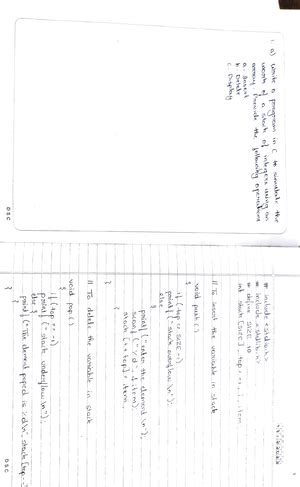 1. a) Write a program in C to simulate the
working of a stack of integers using an
array. Provide the following operations
a. Insert
b. Delete
c. Display
DSC
# include <stdio.h>
# include <stdlib.h>
# define SIZE 10
int stack [SIZE], top = -1, i, item
// To insert the variable in stack
void push ()
{
if (top == SIZE-1)
printf ("stack overflow \n");
else {
printf ("enter the element \n");
scanf ("%d", &item);
stack [++top] = item;
}
}
// To delete the variable in stack
void pop ()
{
if (top == -1)
printf ("stack underflow \n");
else {
printf ("The element poped is %d\n", stack [top--]
}
DSC